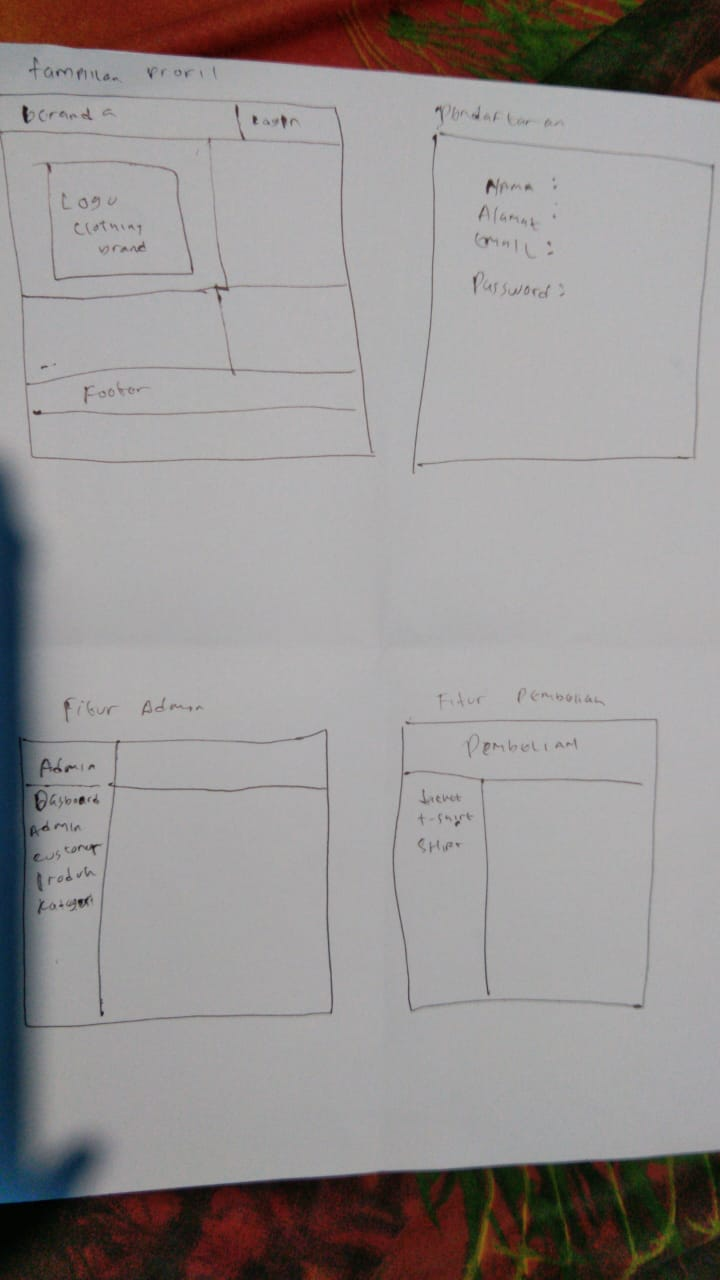 Tampilan Profil
beranda
Login
Logo
Clothing
brand
Footer
Pendaftaran
Nama :
Alamat :
Gmail :
Password :
Fitur Admin
Admin
Dasboard
Admin
customer
Produk
Kategori
Fitur Pembelian
PEMBELIAN
Jacket
t-shirt